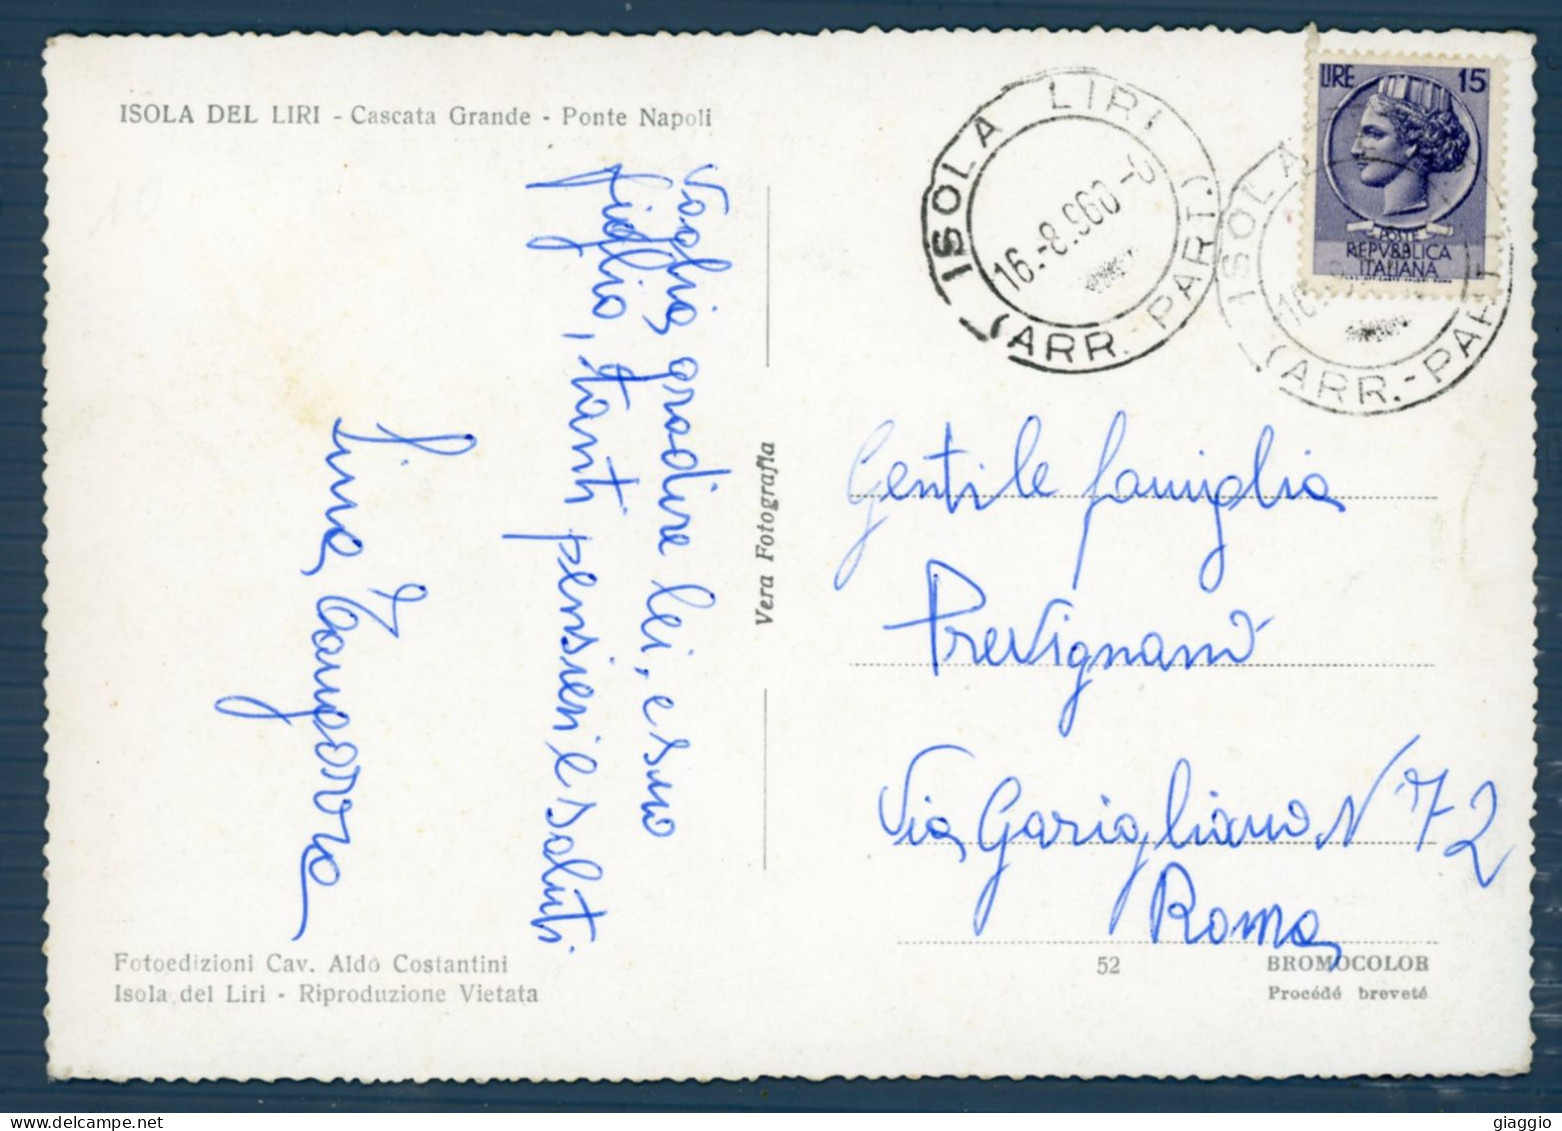 ISOLA DEL LIRI - Cascata Grande - Ponte Napoli
Voglia gradire lei, e suo
figlio, tanti pensieri e saluti
Lina Tamporra
Vera Fotografia
Fotoedizioni Cav. Aldo Costantini
Isola del Liri - Riproduzione Vietata
ISOLA LIRI
16.-8.960
(ARR.-PART.)
LIRE 15
POSTE
REPVBBLICA
ITALIANA
ISOLA
16
(ARR.-PART
Gentile famiglia
Prevignano
Via Garigliano N° 72
Roma
52
BROMOCOLOR
Procédé breveté
giaggio